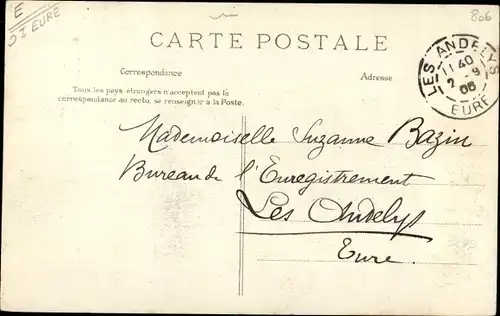 E
27 EURE
806
CARTE POSTALE
Correspondance
Adresse
Tous les pays étrangers n'acceptent pas la
correspondance au recto, se renseigner à la Poste.
LES ANDELYS
11 40
2 - 9
06
EURE
Mademoiselle Suzanne Bazin
Bureau de l'Enregistrement
Les Andelys
Eure.